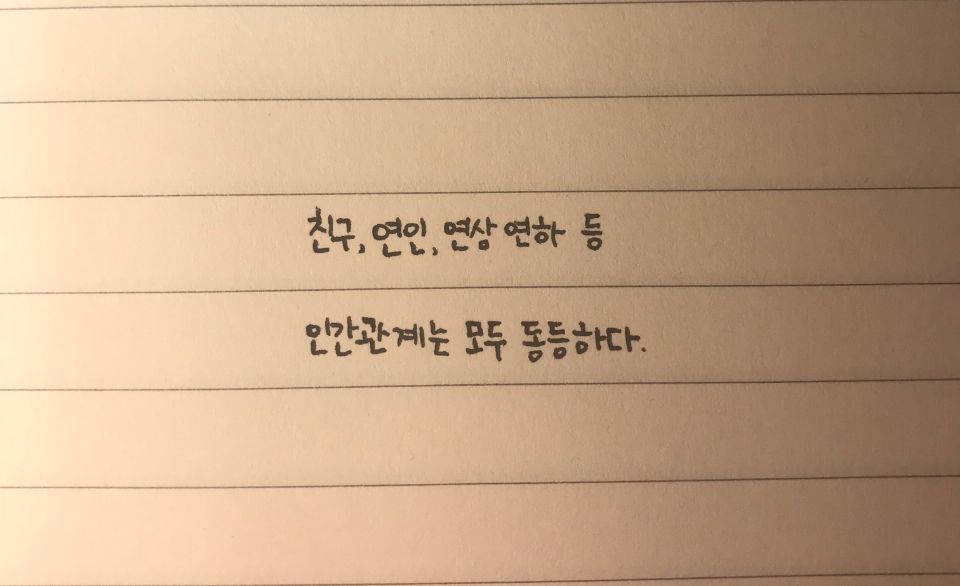 친구, 연인, 연상 연하 등
인간관계는 모두 동등하다.